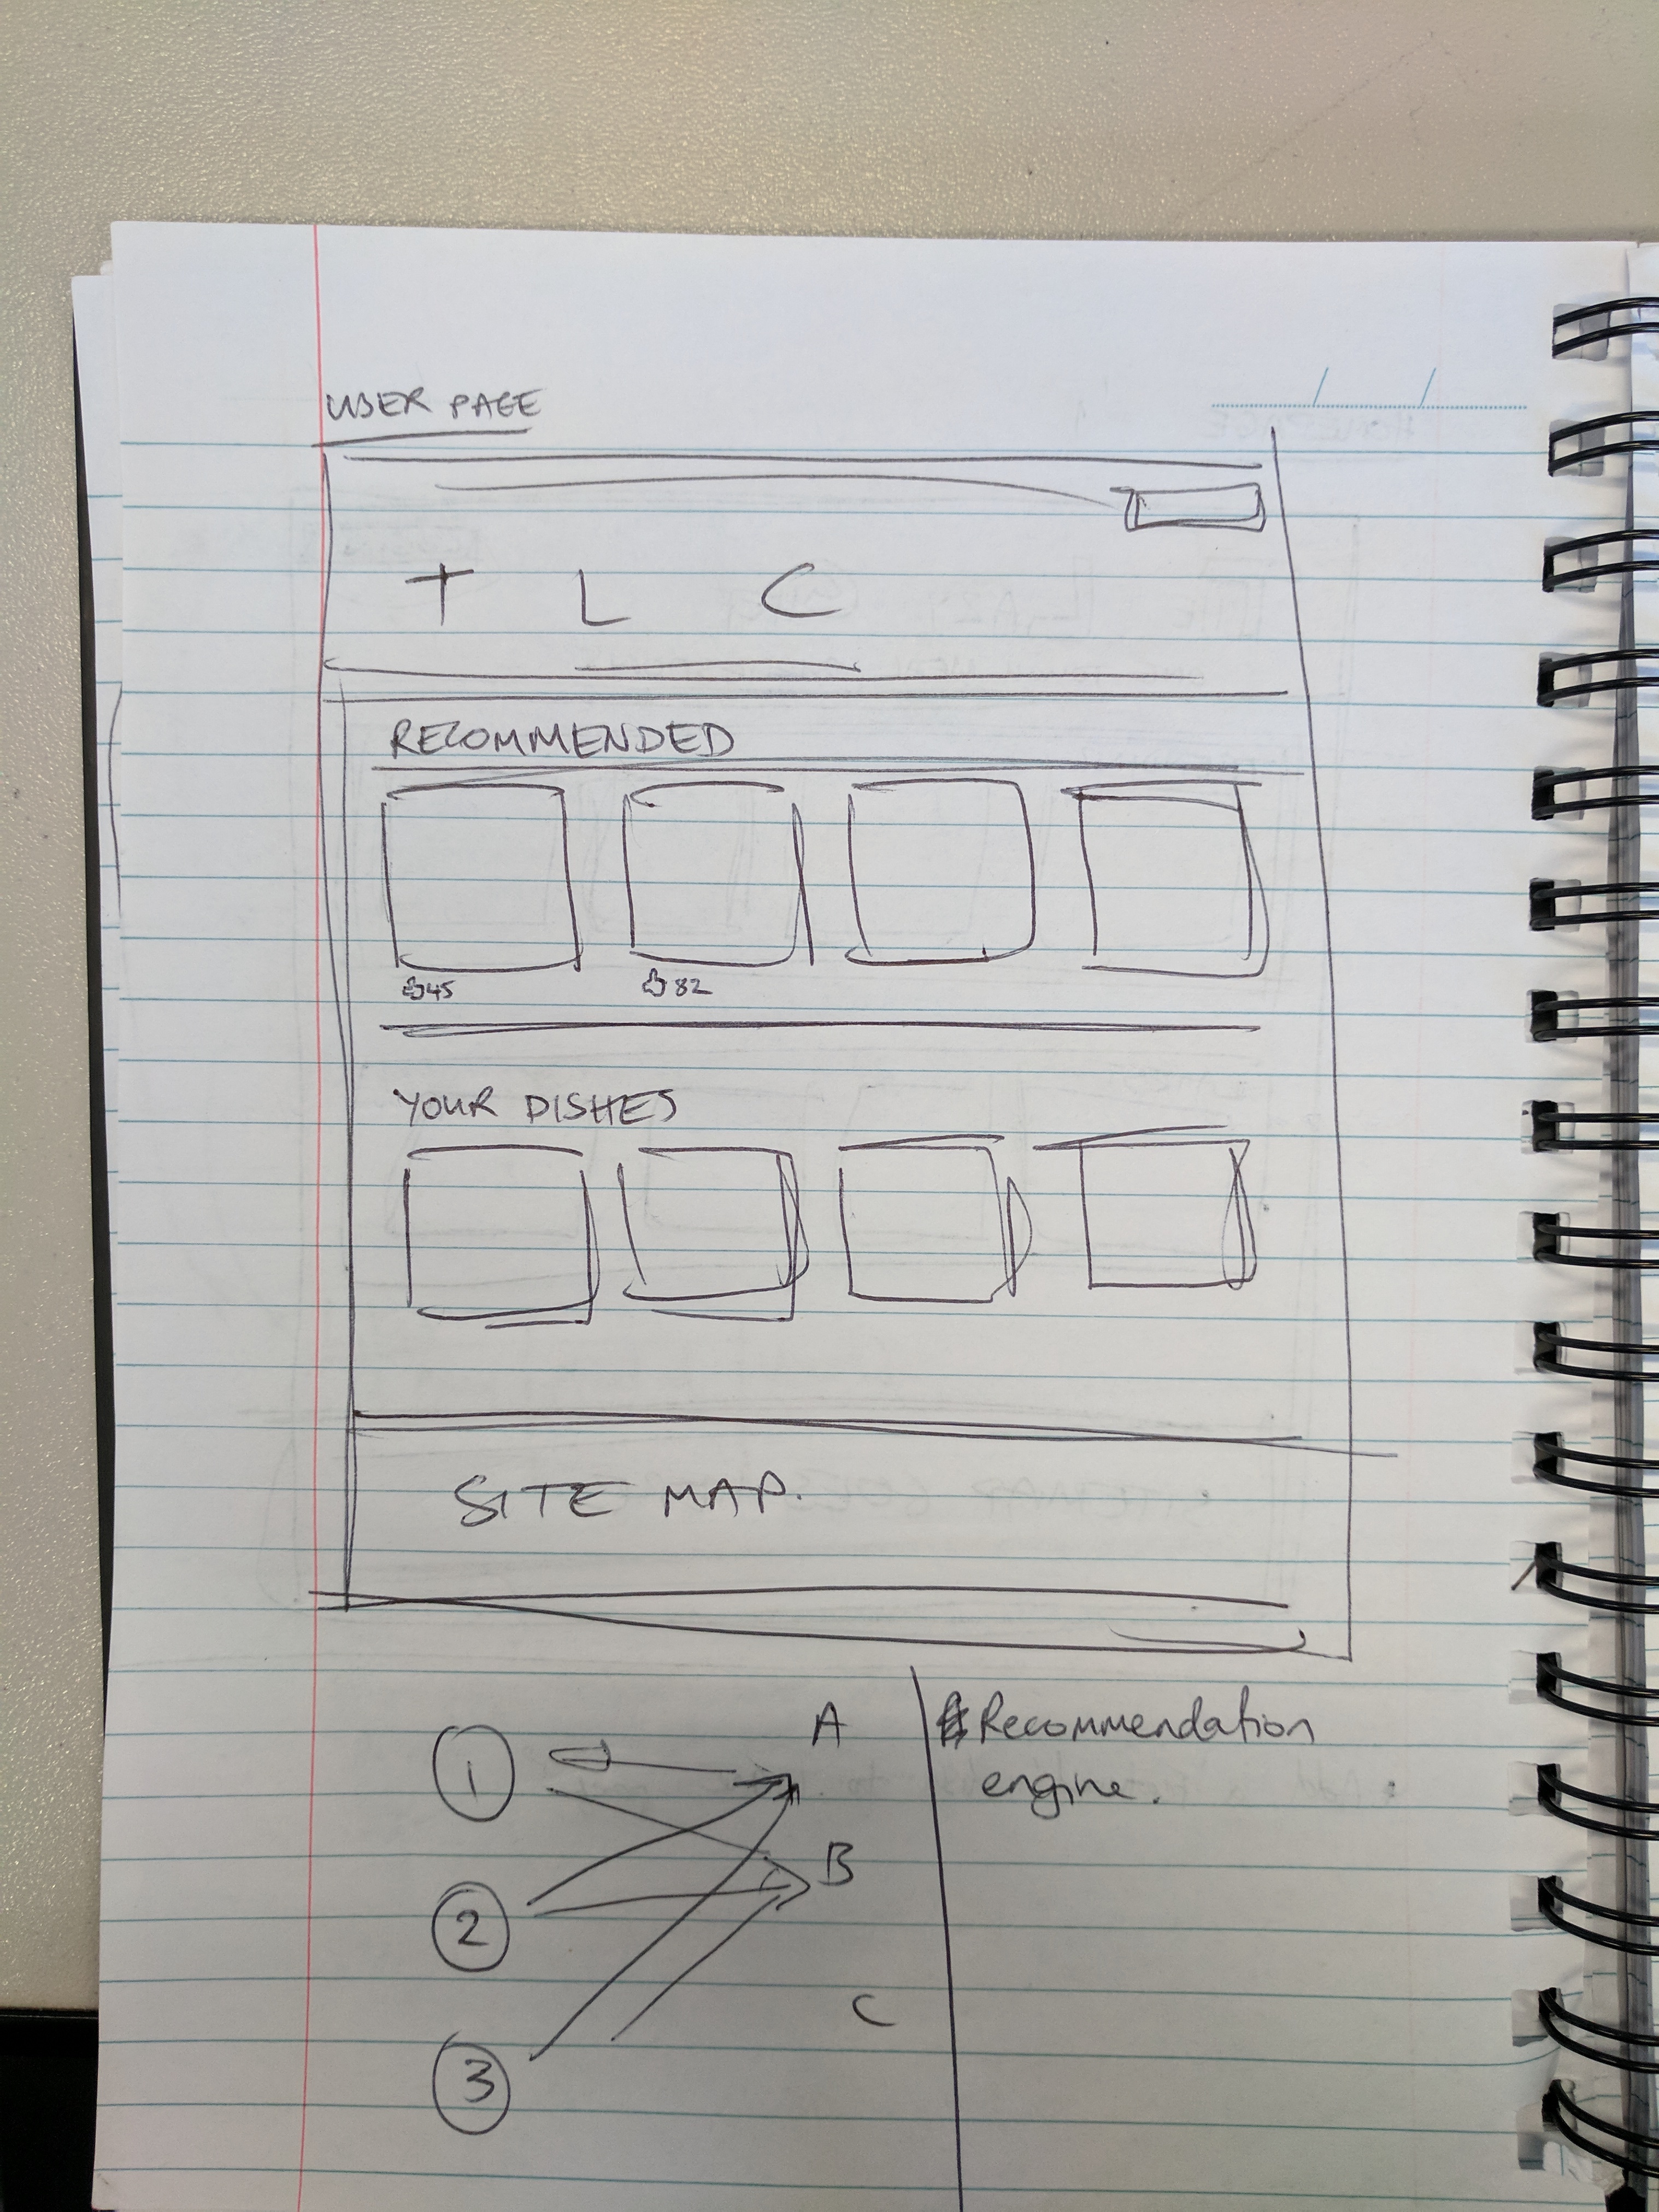 USER PAGE
T L C
RECOMMENDED
45 82
YOUR DISHES
SITE MAP.
A
Recommendation
1
engine.
B
2
C
3